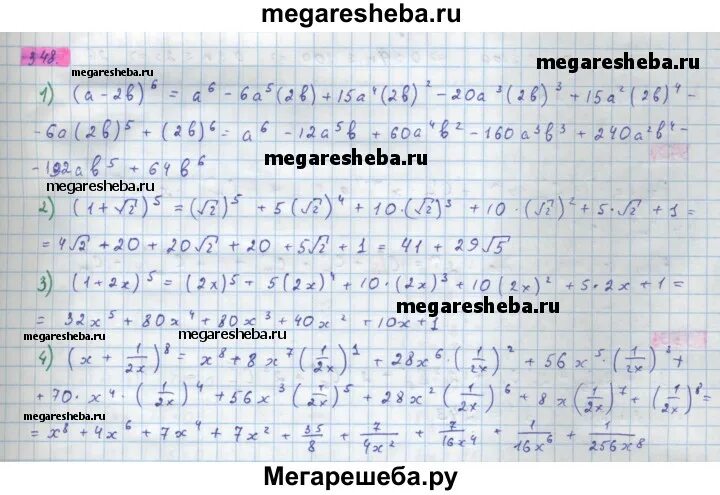 megaresheba.ru
348.
megaresheba.ru
megaresheba.ru
1) (a-2b)^6 = a^6 - 6a^5(2b) + 15a^4(2b)^2 - 20a^3(2b)^3 + 15a^2(2b)^4 -
- 6a(2b)^5 + (2b)^6 = a^6 - 12a^5b + 60a^4b^2 - 160a^3b^3 + 240a^2b^4 -
- 192ab^5 + 64b^6
megaresheba.ru
megaresheba.ru
2) (1+√2)^5 = (√2)^5 + 5(√2)^4 + 10·(√2)^3 + 10·(√2)^2 + 5·√2 + 1 =
= 4√2 + 20 + 20√2 + 20 + 5√2 + 1 = 41 + 29√5
3) (1+2x)^5 = (2x)^5 + 5(2x)^4 + 10·(2x)^3 + 10(2x)^2 + 5·2x + 1 =
megaresheba.ru
= 32x^5 + 80x^4 + 80x^3 + 40x^2 + 10x + 1
megaresheba.ru
megaresheba.ru
4) (x + 1/2x)^8 = x^8 + 8x^7(1/2x)^1 + 28x^6·(1/2x)^2 + 56x^5·(1/2x)^3 +
+ 70·x^4·(1/2x)^4 + 56x^3(1/2x)^5 + 28x^2(1/2x)^6 + 8x(1/2x)^7 + (1/2x)^8 =
megaresheba.ru
= x^8 + 4x^6 + 7x^4 + 7x^2 + 35/8 + 7/4x^2 + 7/16x^4 + 1/16x^6 + 1/256x^8
Мегарешеба.ру